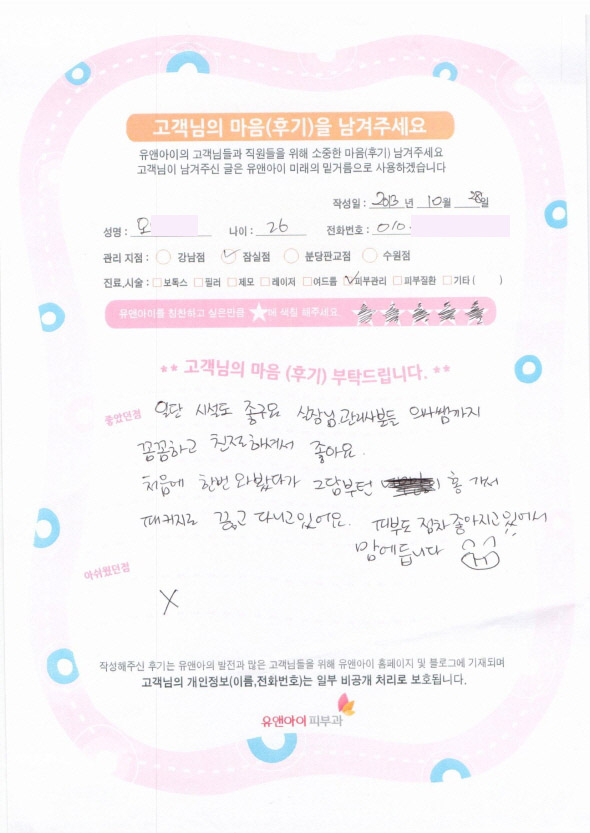 고객님의 마음(후기)을 남겨주세요
유앤아이의 고객님들과 직원들을 위해 소중한 마음(후기) 남겨주세요
고객님이 남겨주신 글은 유앤아이 미래의 밑거름으로 사용하겠습니다
작성일 : 2013 년 10월 28일
성명 : 오 나이 : 26 전화번호 : 010-
관리 지점 : 강남점 잠실점 분당판교점 수원점
진료,시술 : 보톡스 필러 제모 레이저 여드름 피부관리 피부질환 기타 ( )
유앤아이를 칭찬하고 싶은만큼 에 색칠 해주세요
** 고객님의 마음 (후기) 부탁드립니다. **
좋았던점 일단 시설도 좋구요 실장님, 관리사분들 의사쌤까지
꼼꼼하고 친절하셔서 좋아요.
처음에 한번 와봤다가 그담부턴 홍 가서
패키지로 끊고 다니고있어요. 피부도 점차 좋아지고있어서
맘에듭니다
아쉬웠던점
X
작성해주신 후기는 유앤아의 발전과 많은 고객님들을 위해 유앤아이 홈페이지 및 블로그에 기재되며
고객님의 개인정보(이름,전화번호)는 일부 비공개 처리로 보호됩니다.
유앤아이피부과